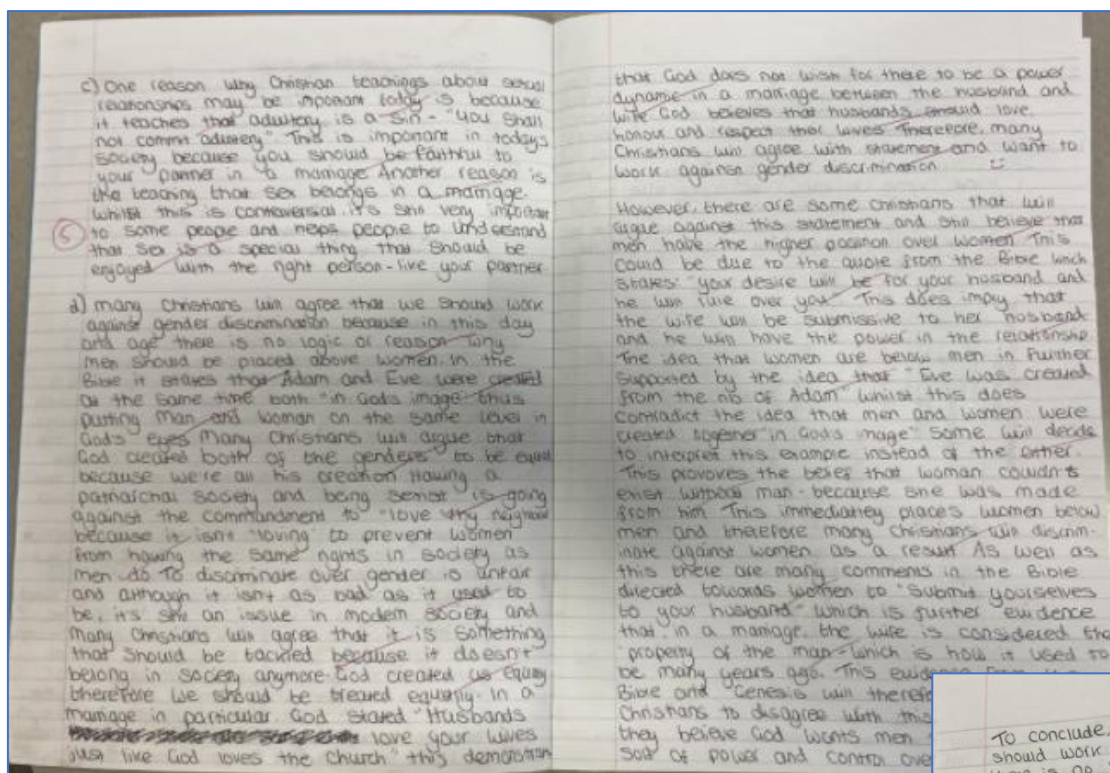 c) One reason why Christian teachings about sexual
relationships may be important today is because
it teaches that adultery is a sin - "You shall
not commit adultery" This is important in todays
society because you should be faithful to
your partner in a marriage Another reason is
the teaching that sex belongs in a marriage.
Whilst this is controversial, it's still very important
5 to some people and helps people to understand
that sex is a special thing that should be
enjoyed with the right person - like your partner
d) many Christians will agree that we should work
against gender discrimination because in this day
and age there is no logic or reason why
men should be placed above women. In the
Bible it states that Adam and Eve were created
at the same time both "in God's image" thus
putting man and woman on the same level in
God's eyes Many Christians will argue that
God created both of the genders to be equal
because we're all his creation Having a
patriarchal society and being sexist is going
against the commandment to "love thy neighbour
because it isn't "loving" to prevent women
from having the same rights in society as
men do To discriminate over gender is unfair
and although it isn't as bad as it used to
be, it's still an issue in modern society and
many Christians will agree that it is something
that should be tackled because it doesn't
belong in society anymore. God created us equally
therefore we should be treated equally. In a
marriage in particular. God stated "Husbands
love your wives
just like God loves the Church" this demonstrates
that God does not wish for there to be a power
dynamic in a marriage between the husband and
wife God believes that husbands should love,
honour and respect their wives Thereefore, many
Christians will agree with statement and want to
work against gender discrimination
However, there are some Christians that will
argue against this statement and still believe that
men have the higher position over women This
could be due to the quote from the Bible which
states: "your desire will be for your husband and
he will rule over you" This does imply that
the wife will be submissive to her husband
and he will have the power in the relationship
The idea that women are below men in further
supported by the idea that "Eve was created
from the rib of Adam" whilst this does
contradict the idea that men and women were
created together "in God's image" some will decide
to interpret this example instead of the other.
This provoves the belief that woman couldn't
exist without man - because she was made
from him This immediatley places women below
men and therefore many Christians will discrim-
inate against women as a result As well as
this there are many comments in the Bible
directed towards women to "Submit yourselves
to your husband" which is further evidence
that, in a marriage, the wife is considered the
property of the man - which is how it used to
be many years ago. This evidence from the
Bible and Genesis will therefo
Christians to disagree with this
they believe God wants men
sort of power and control over
To conclude,
should work